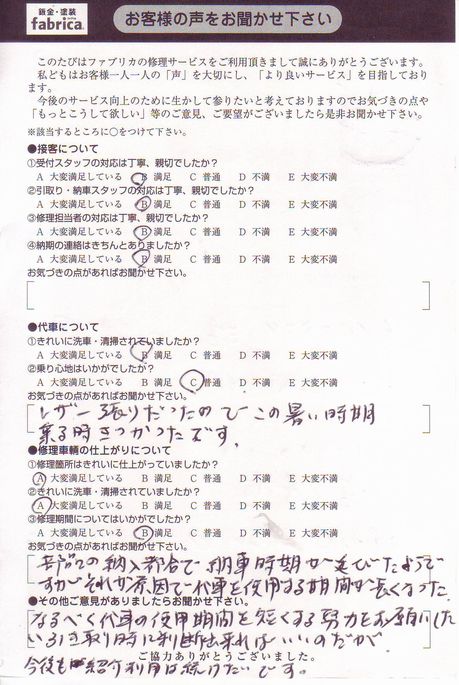 鈑金・塗装
fabrica.
お客様の声をお聞かせ下さい
このたびはファブリカの修理サービスをご利用頂きまして誠にありがとうございます。
私どもはお客様一人一人の「声」を大切にし、「より良いサービス」を目指しており
ます。
今後のサービス向上のために生かして参りたいと考えておりますのでお気づきの点や
「もっとこうして欲しい」等のご意見、ご要望がございましたら是非お聞かせ下さい。
※該当するところに○をつけて下さい。
●接客について
①受付スタッフの対応は丁寧、親切でしたか？
A 大変満足している B 満足 C 普通 D 不満 E 大変不満
②引取り・納車スタッフの対応は丁寧、親切でしたか？
A 大変満足している B 満足 C 普通 D 不満 E 大変不満
③修理担当者の対応は丁寧、親切でしたか？
A 大変満足している B 満足 C 普通 D 不満 E 大変不満
④納期の連絡はきちんとありましたか？
A 大変満足している B 満足 C 普通 D 不満 E 大変不満
お気づきの点があればお聞かせ下さい。
●代車について
①きれいに洗車・清掃されていましたか？
A 大変満足している B 満足 C 普通 D 不満 E 大変不満
②乗り心地はいかがでしたか？
A 大変満足している B 満足 C 普通 D 不満 E 大変不満
お気づきの点があればお聞かせ下さい。
レザー張りだったのでこの暑い時期
乗る時きつかったです。
●修理車輌の仕上がりについて
①修理箇所はきれいに仕上がっていましたか？
A 大変満足している B 満足 C 普通 D 不満 E 大変不満
②きれいに洗車・清掃されていましたか？
A 大変満足している B 満足 C 普通 D 不満 E 大変不満
③修理期間についてはいかがでしたか？
A 大変満足している B 満足 C 普通 D 不満 E 大変不満
お気づきの点があればお聞かせ下さい。
部品の納入都合で納車時期が延びたようで
すがそれが原因で代車を使用する期間が長くなった。
●その他ご意見がありましたらお聞かせ下さい。
なるべく代車の使用期間を短くする努力をお願いした
い引き取り時に判断出来ればいいのだが
ご協力ありがとうございました。
今後も紹介利用は続けたいです。